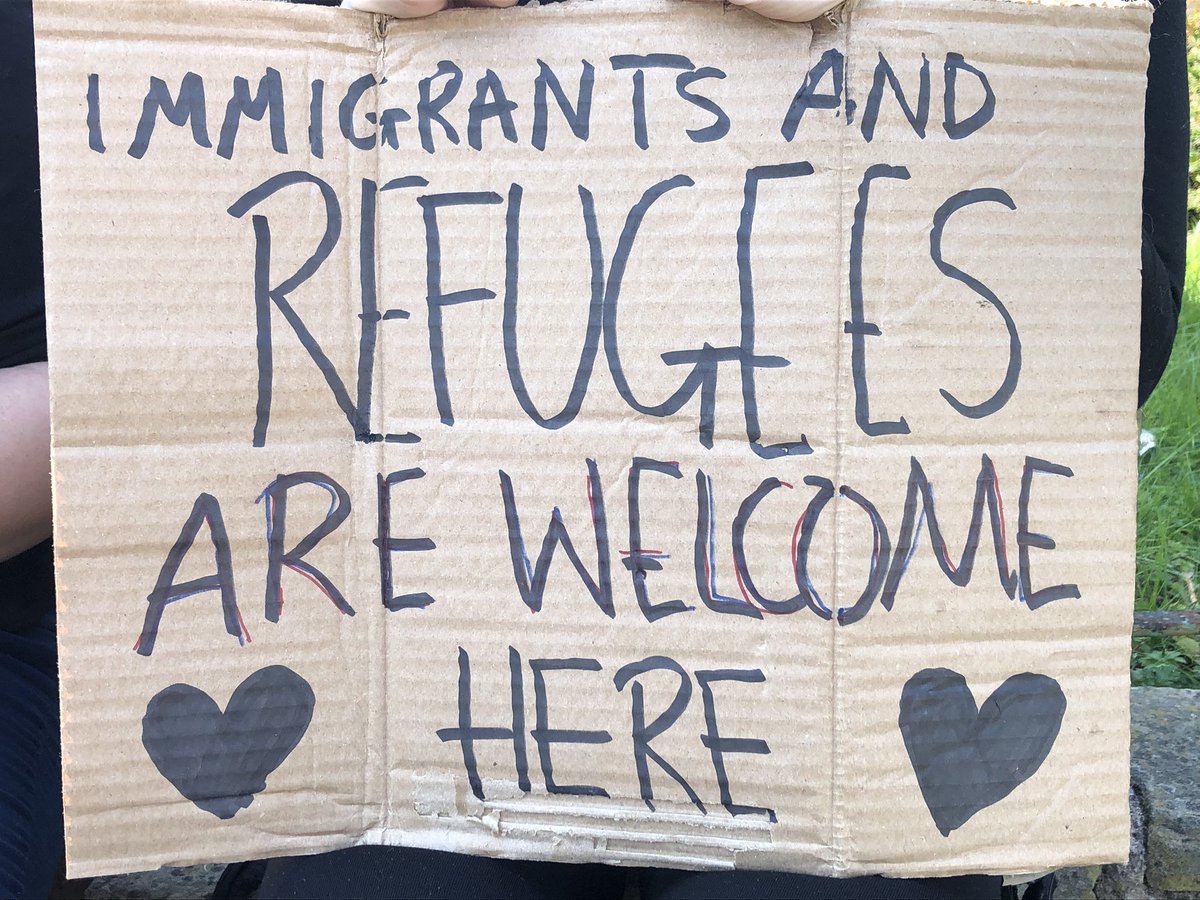 IMMIGRANTS AND
REFUGEES
ARE WELCOME
HERE